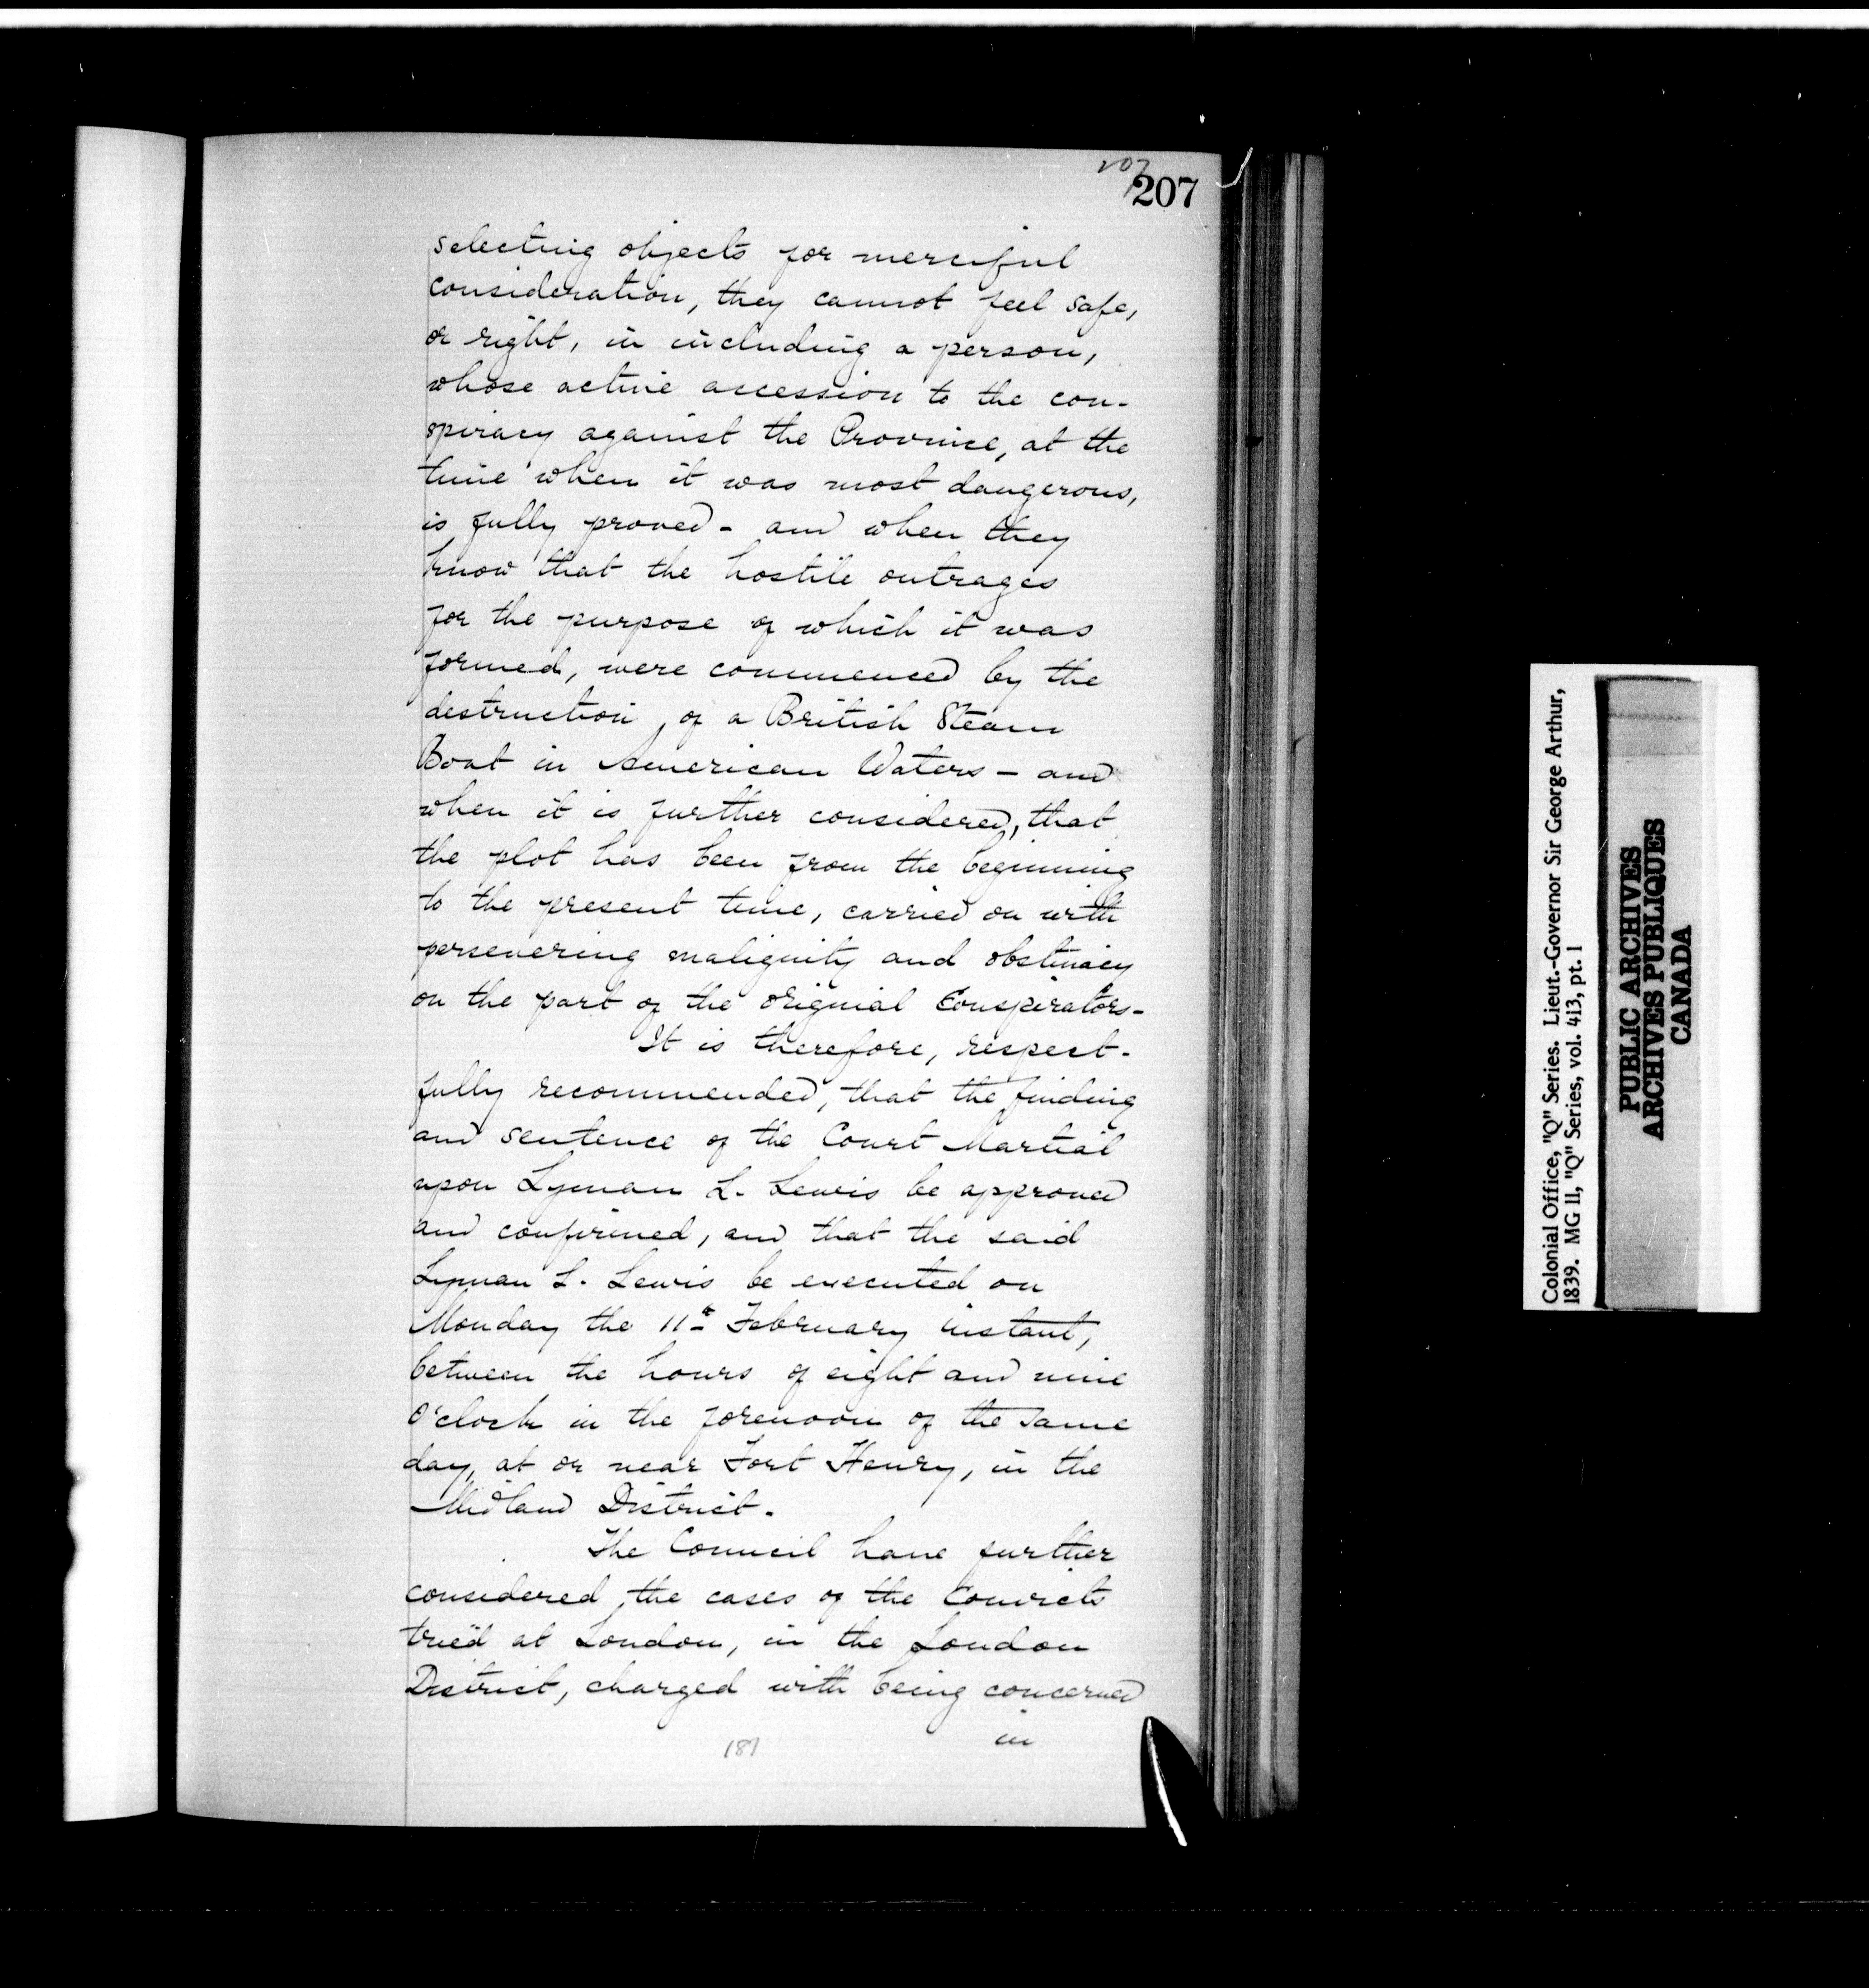 207
207
selecting objects for merciful
consideration, they cannot feel safe,
or right, in including a person,
whose active accession to the con-
spiracy against the Province, at the
time when it was most dangerous,
is fully proved - and when they
know that the hostile outrages
for the purpose of which it was
formed, were commenced by the
destruction, of a British Steam
Boat in American Waters - and
when it is further considered, that
the plot has been from the beginning
to the present time, carried on with
persevering malignity and obstinacy
on the part of the original Conspirators-
It is therefore, respect-
fully recommended, that the finding
and sentence of the Court Martial
upon Lyman L. Lewis be approved
and confirmed, and that the said
Lyman L. Lewis be executed on
Monday the 11th February instant,
between the hours of eight and nine
O'clock in the forenoon of the same
day, at or near Fort Henry, in the
Midland District.
The Council have further
considered, the cases of the Convicts
tried at London, in the London
District, charged with being concerned
in
181
Colonial Office, "Q" Series. Lieut.-Governor Sir George Arthur,
1839. MG 11, "Q" Series, vol. 413, pt. 1
PUBLIC ARCHIVES
ARCHIVES PUBLIQUES
CANADA